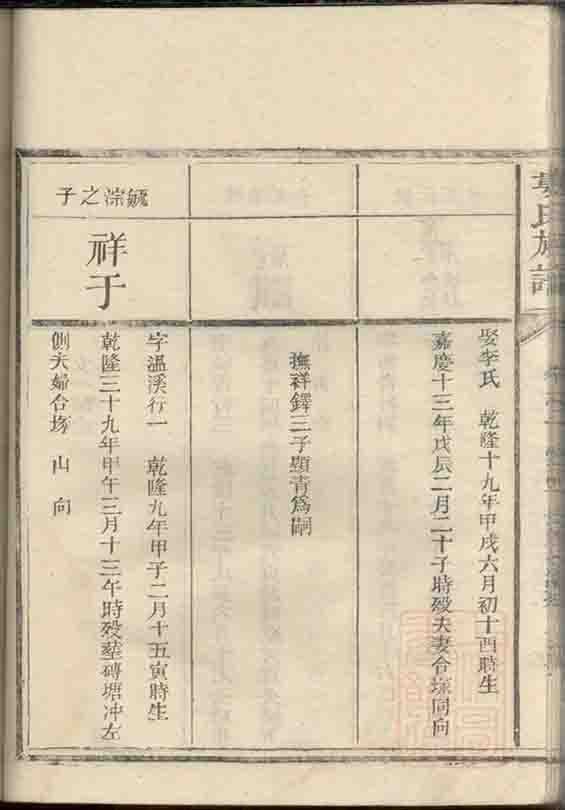 氏族譜
娶李氏 乾隆十九年甲戌六月初十酉時生
嘉慶十三年戊辰二月二十子時歿夫妻合塚同向
撫祥鐸三子顯青爲嗣
毓淙之子
祥于
字溫溪行一 乾隆九年甲子二月十五寅時生
乾隆三十九年甲午三月十三午時歿塟磚塘冲左
側夫婦合塚 山 向